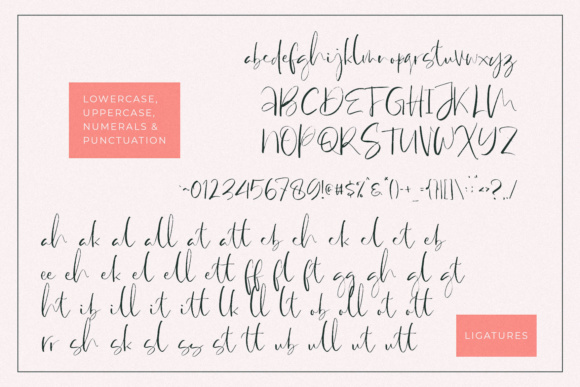 abcdefghijklmnopqrstuvwxyz
LOWERCASE,
UPPERCASE,
NUMERALS &
PUNCTUATION
ABCDEFGHIJKLM
NOPQRSTUVWXYZ
0123456789!@#$%^&*()-+
ah ak al all at att cb ch ck cl ct eb
ee eh ek el ell ett ff fl ft gg gh gl gt
ht ib ill it itt lk ll lt ob oll ot ott
rr sh sk sl ss st tt ub ull ut utt
LIGATURES